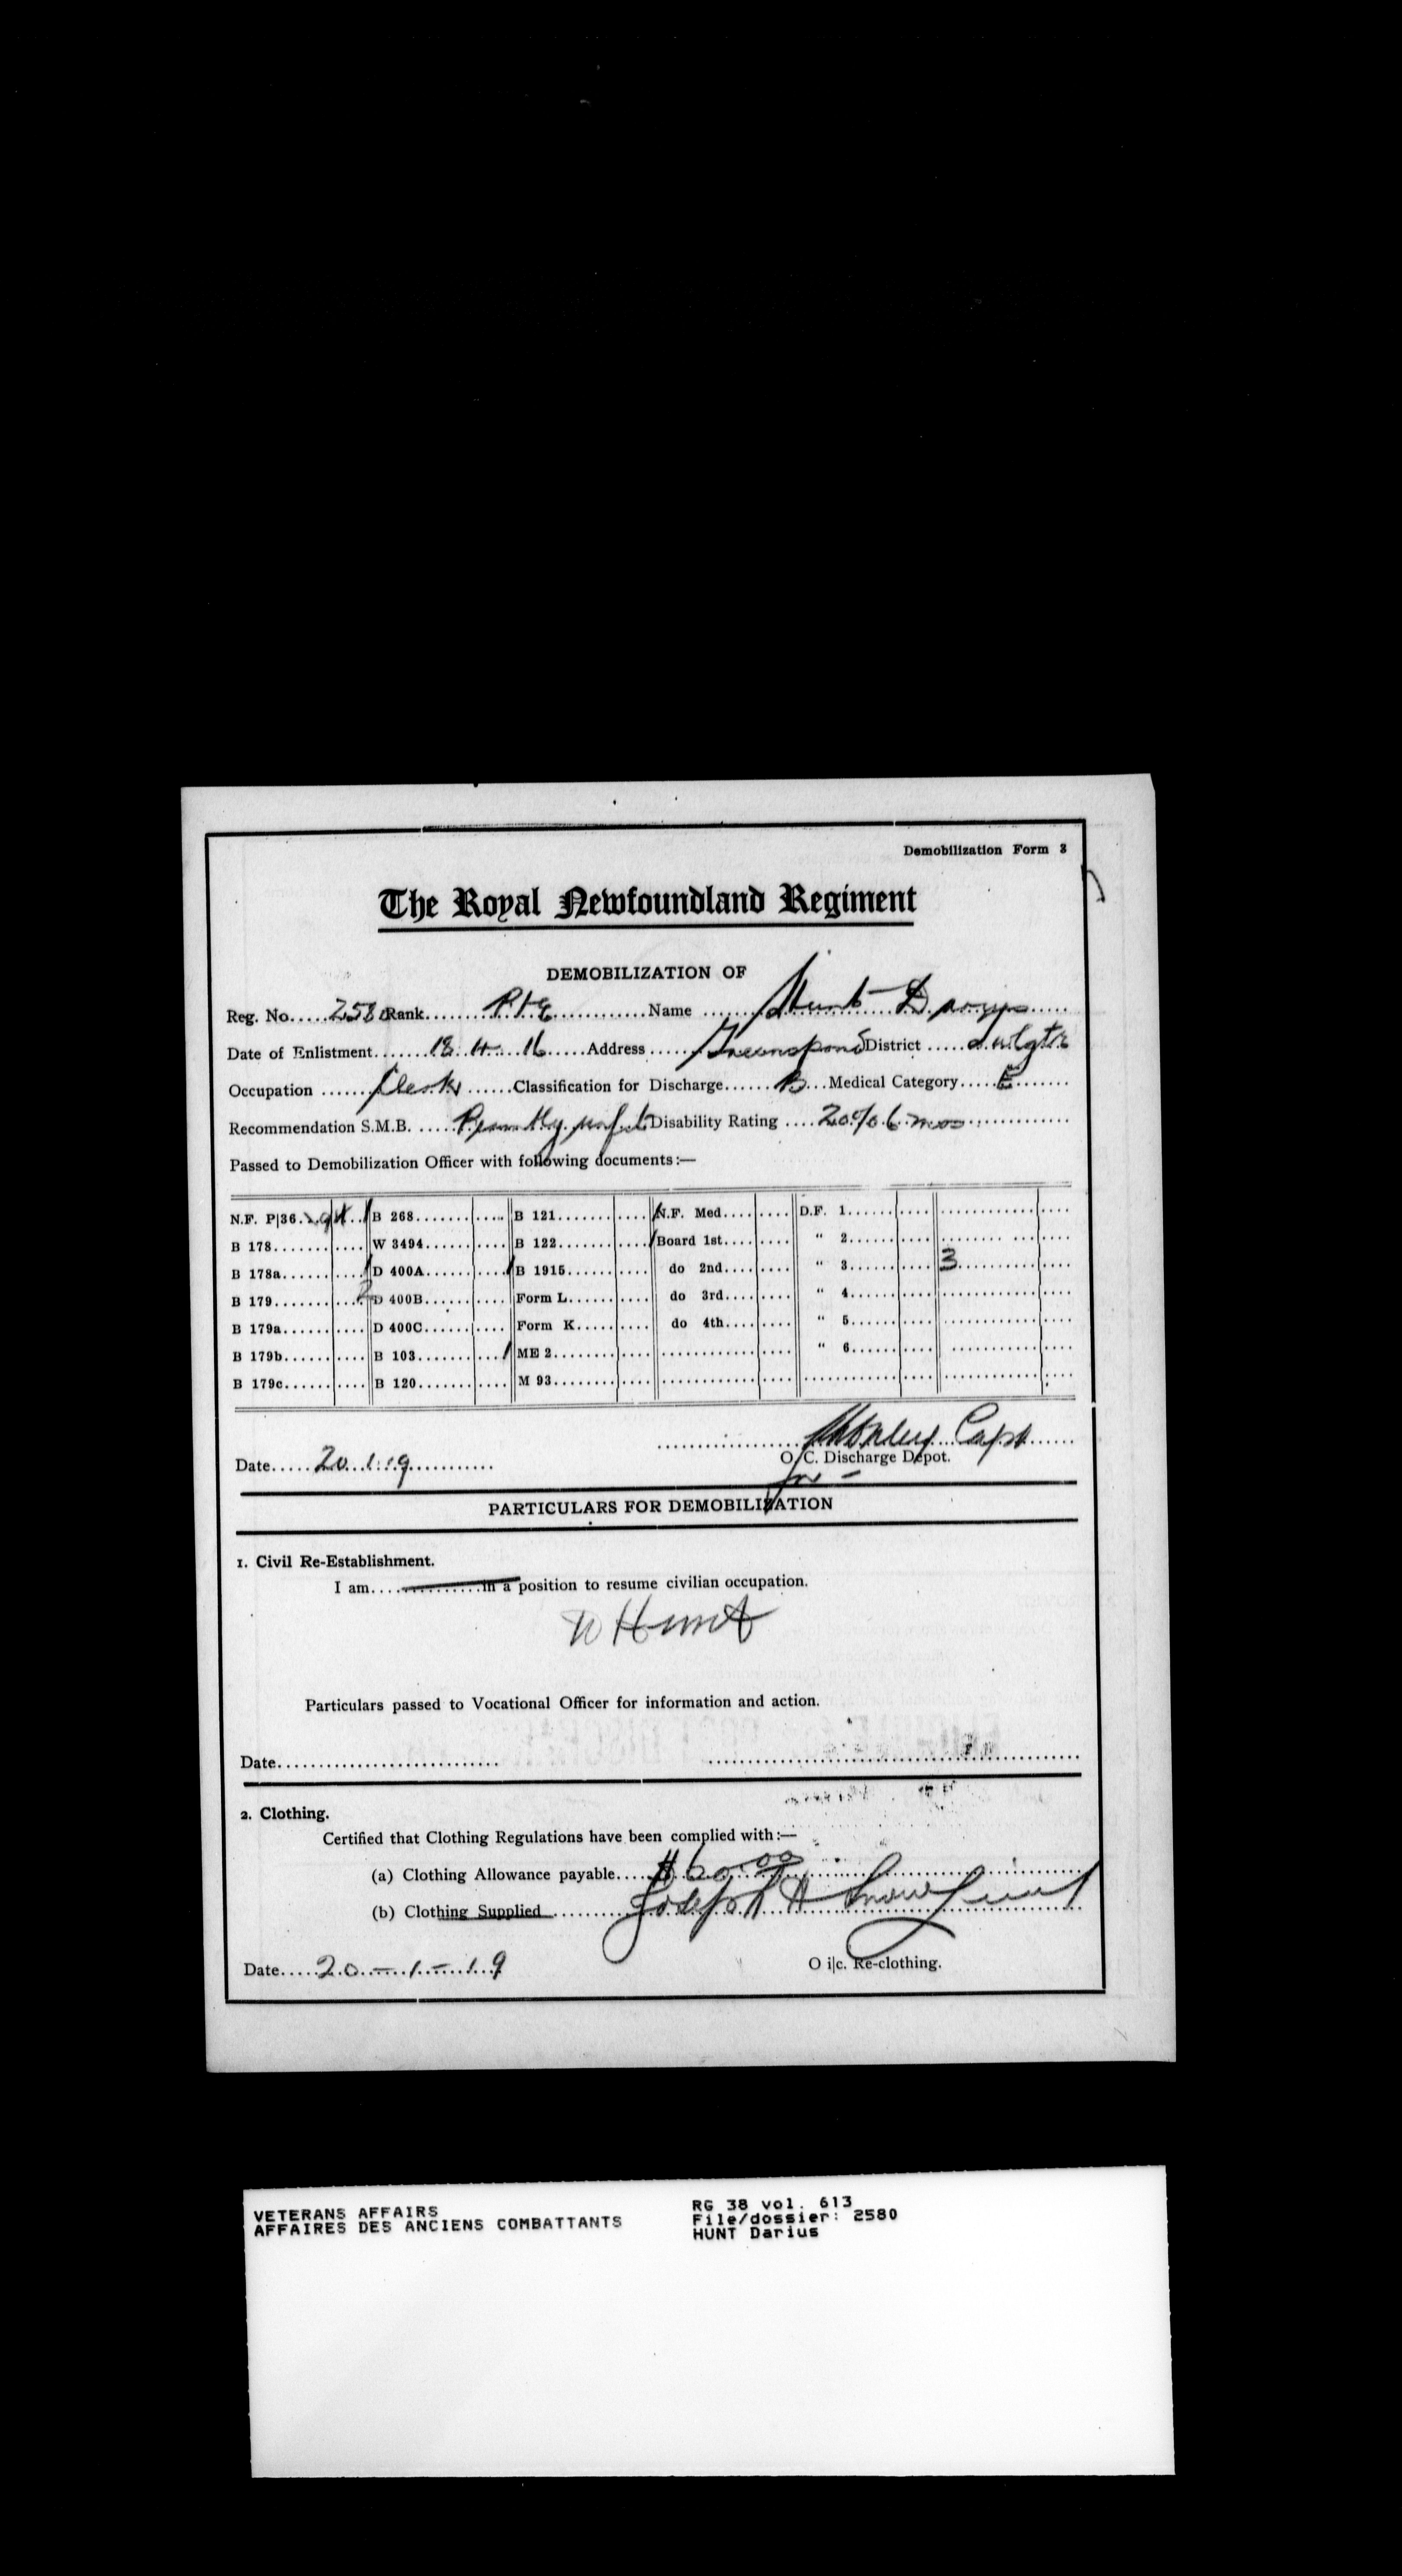 Demobilization Form 3
The Royal Newfoundland Regiment
DEMOBILIZATION OF
Reg. No..... 2580 Rank........ Pte ............Name ....... Hunt Darius .....
Date of Enlistment....... 18. 4. 16 .....Address..... Greenspond District .....
Occupation ...... Clerk ......Classification for Discharge...... B ...Medical Category..... E .......
Recommendation S.M.B. ..... unfit Disability Rating .... 20% 6 mos ..............
Passed to Demobilization Officer with following documents:—
N.F. P|36... / B 268........ B 121........ / N.F. Med.... D.F. 1......
B 178........ W 3494...... B 122........ / Board 1st.... " 2......
B 178a...... / D 400A...... / B 1915...... do 2nd.... " 3...... 3
B 179........ 2 D 400B...... Form L...... do 3rd.... " 4......
B 179a...... D 400C...... Form K..... do 4th.... " 5......
B 179b...... B 103........ / ME 2........ " 6......
B 179c...... B 120........ M 93........
Capt
Date..... 20.1.19 ........... O/C. Discharge Depot.
for -
PARTICULARS FOR DEMOBILIZATION
1. Civil Re-Establishment.
I am...............in a position to resume civilian occupation.
D Hunt
Particulars passed to Vocational Officer for information and action.
Date............................
2. Clothing.
Certified that Clothing Regulations have been complied with:—
(a) Clothing Allowance payable.... $60.00
(b) Clothing Supplied .......... Joseph H Snow Lieut
Date..... 20 - 1 - 19 O i|c. Re-clothing.
VETERANS AFFAIRS
AFFAIRES DES ANCIENS COMBATTANTS
RG 38 vol. 613
File/dossier: 2580
HUNT Darius